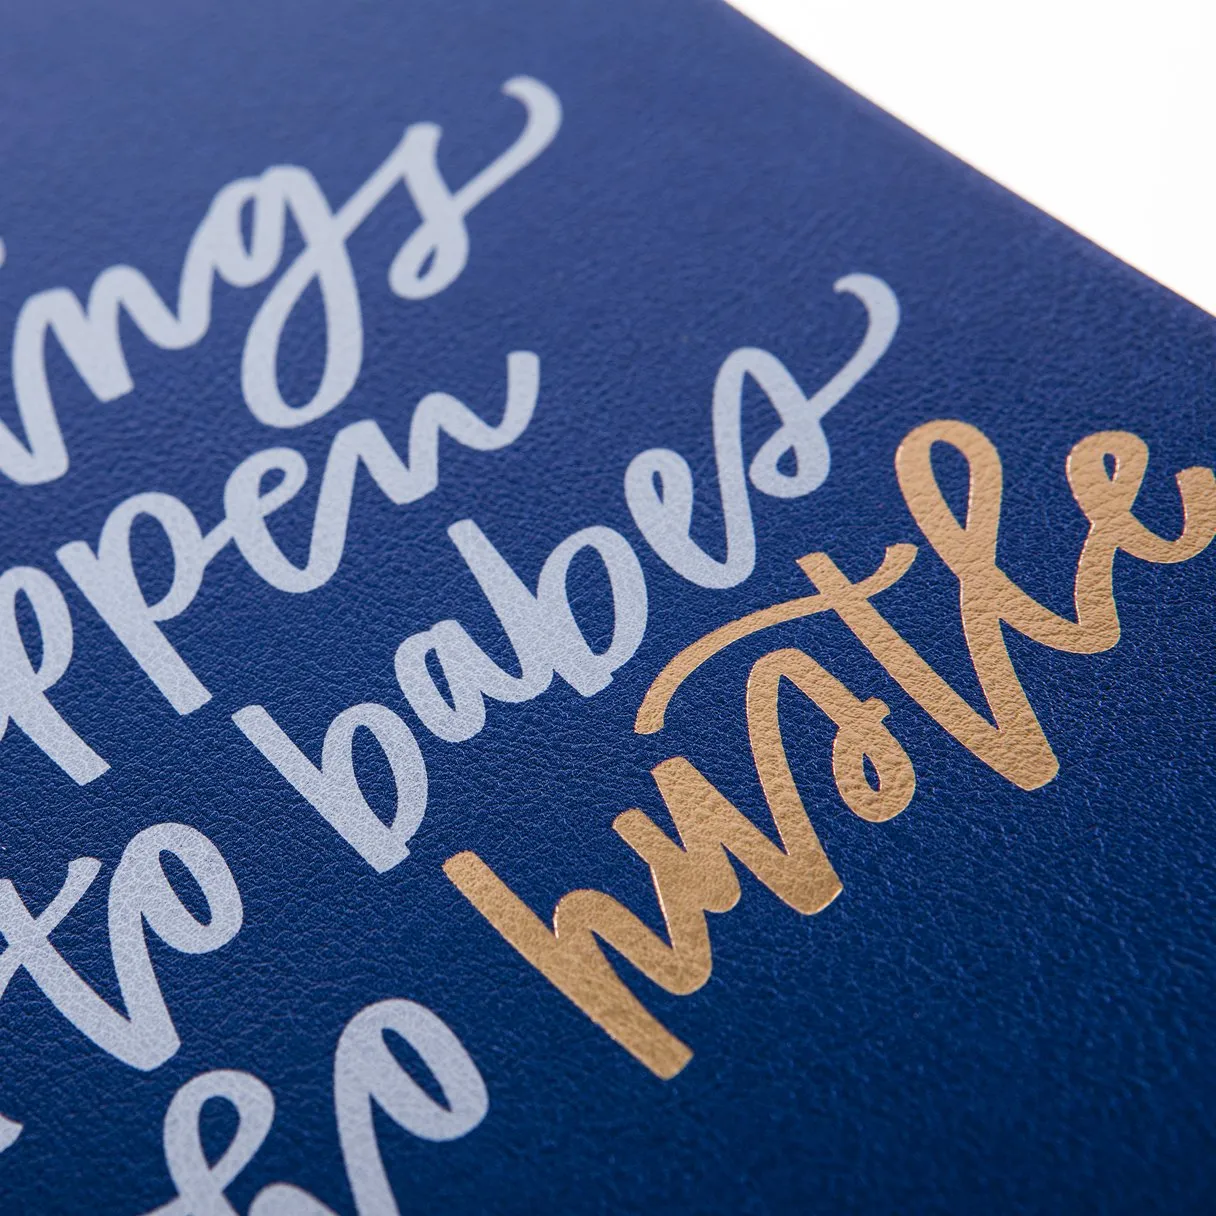 ings
ppen
to babes
ho hustle